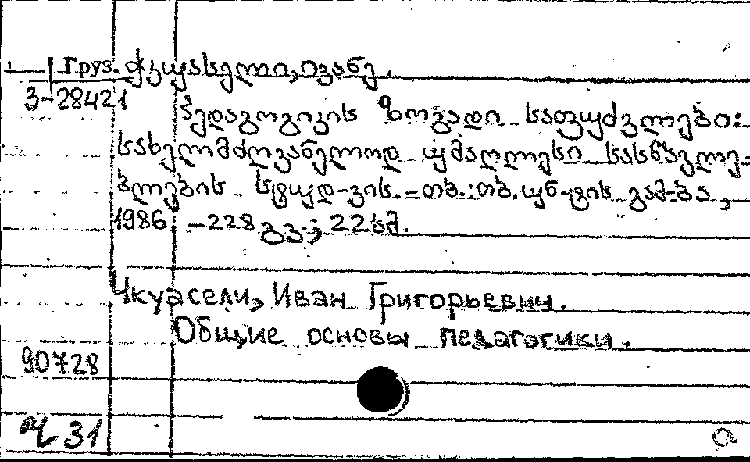 Груз. ჭკუასელი, ივანე.
3-28421
პედაგოგიკის ზოგადი საფუძვლები:
სახელმძღვანელოდ უმაღლესი სასწავლე-
ბლების სტუდ-ვის. - თბ.: თბ. უნ-ტის გამ-ბა,
1986. - 228 გვ.; 22 სმ.
Чкуасели, Иван Григорьевич.
Общие основы педагогики.
90728
Ч 31